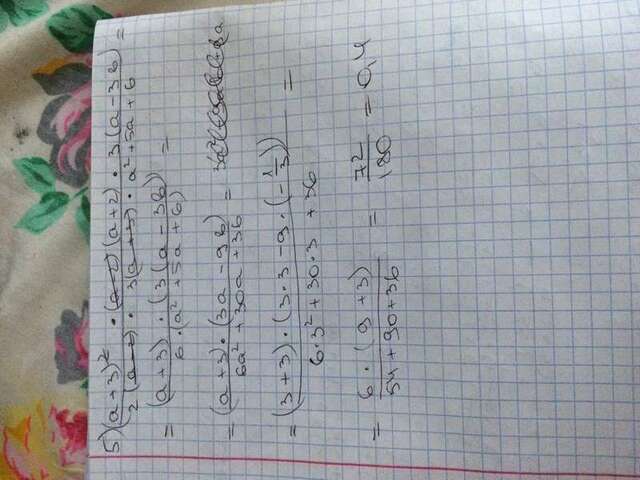 5) (a+3)² · (a-2)(a+2) · 3(a-3b) / 2(a-2) · 3(a+3) · a²+5a+6 =
= (a+3) · (3(a-3b)) / 6·(a²+5a+6) =
= (a+3)·(3a-9b) / 6a²+30a+36 =
= (3+3)·(3·3-9·(-1/3)) / 6·3²+30·3+36 =
= 6·(9+3) / 54+90+36 = 72/180 = 0,4